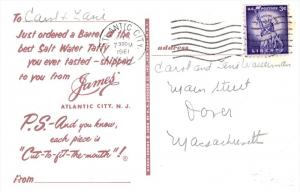 To Carol & Gene
Just ordered a Barrel of the
best Salt Water Taffy
you ever tasted - shipped
to you from
James'
ATLANTIC CITY, N. J.
P.S. - And you know,
each piece is
"Cut-to-fit-the-mouth"!®
From
ATLANTIC CITY
1961
address
U.S. POSTAGE 3¢
LIBERTY
Carol and Gene
Main Street
Dover
Massachusetts